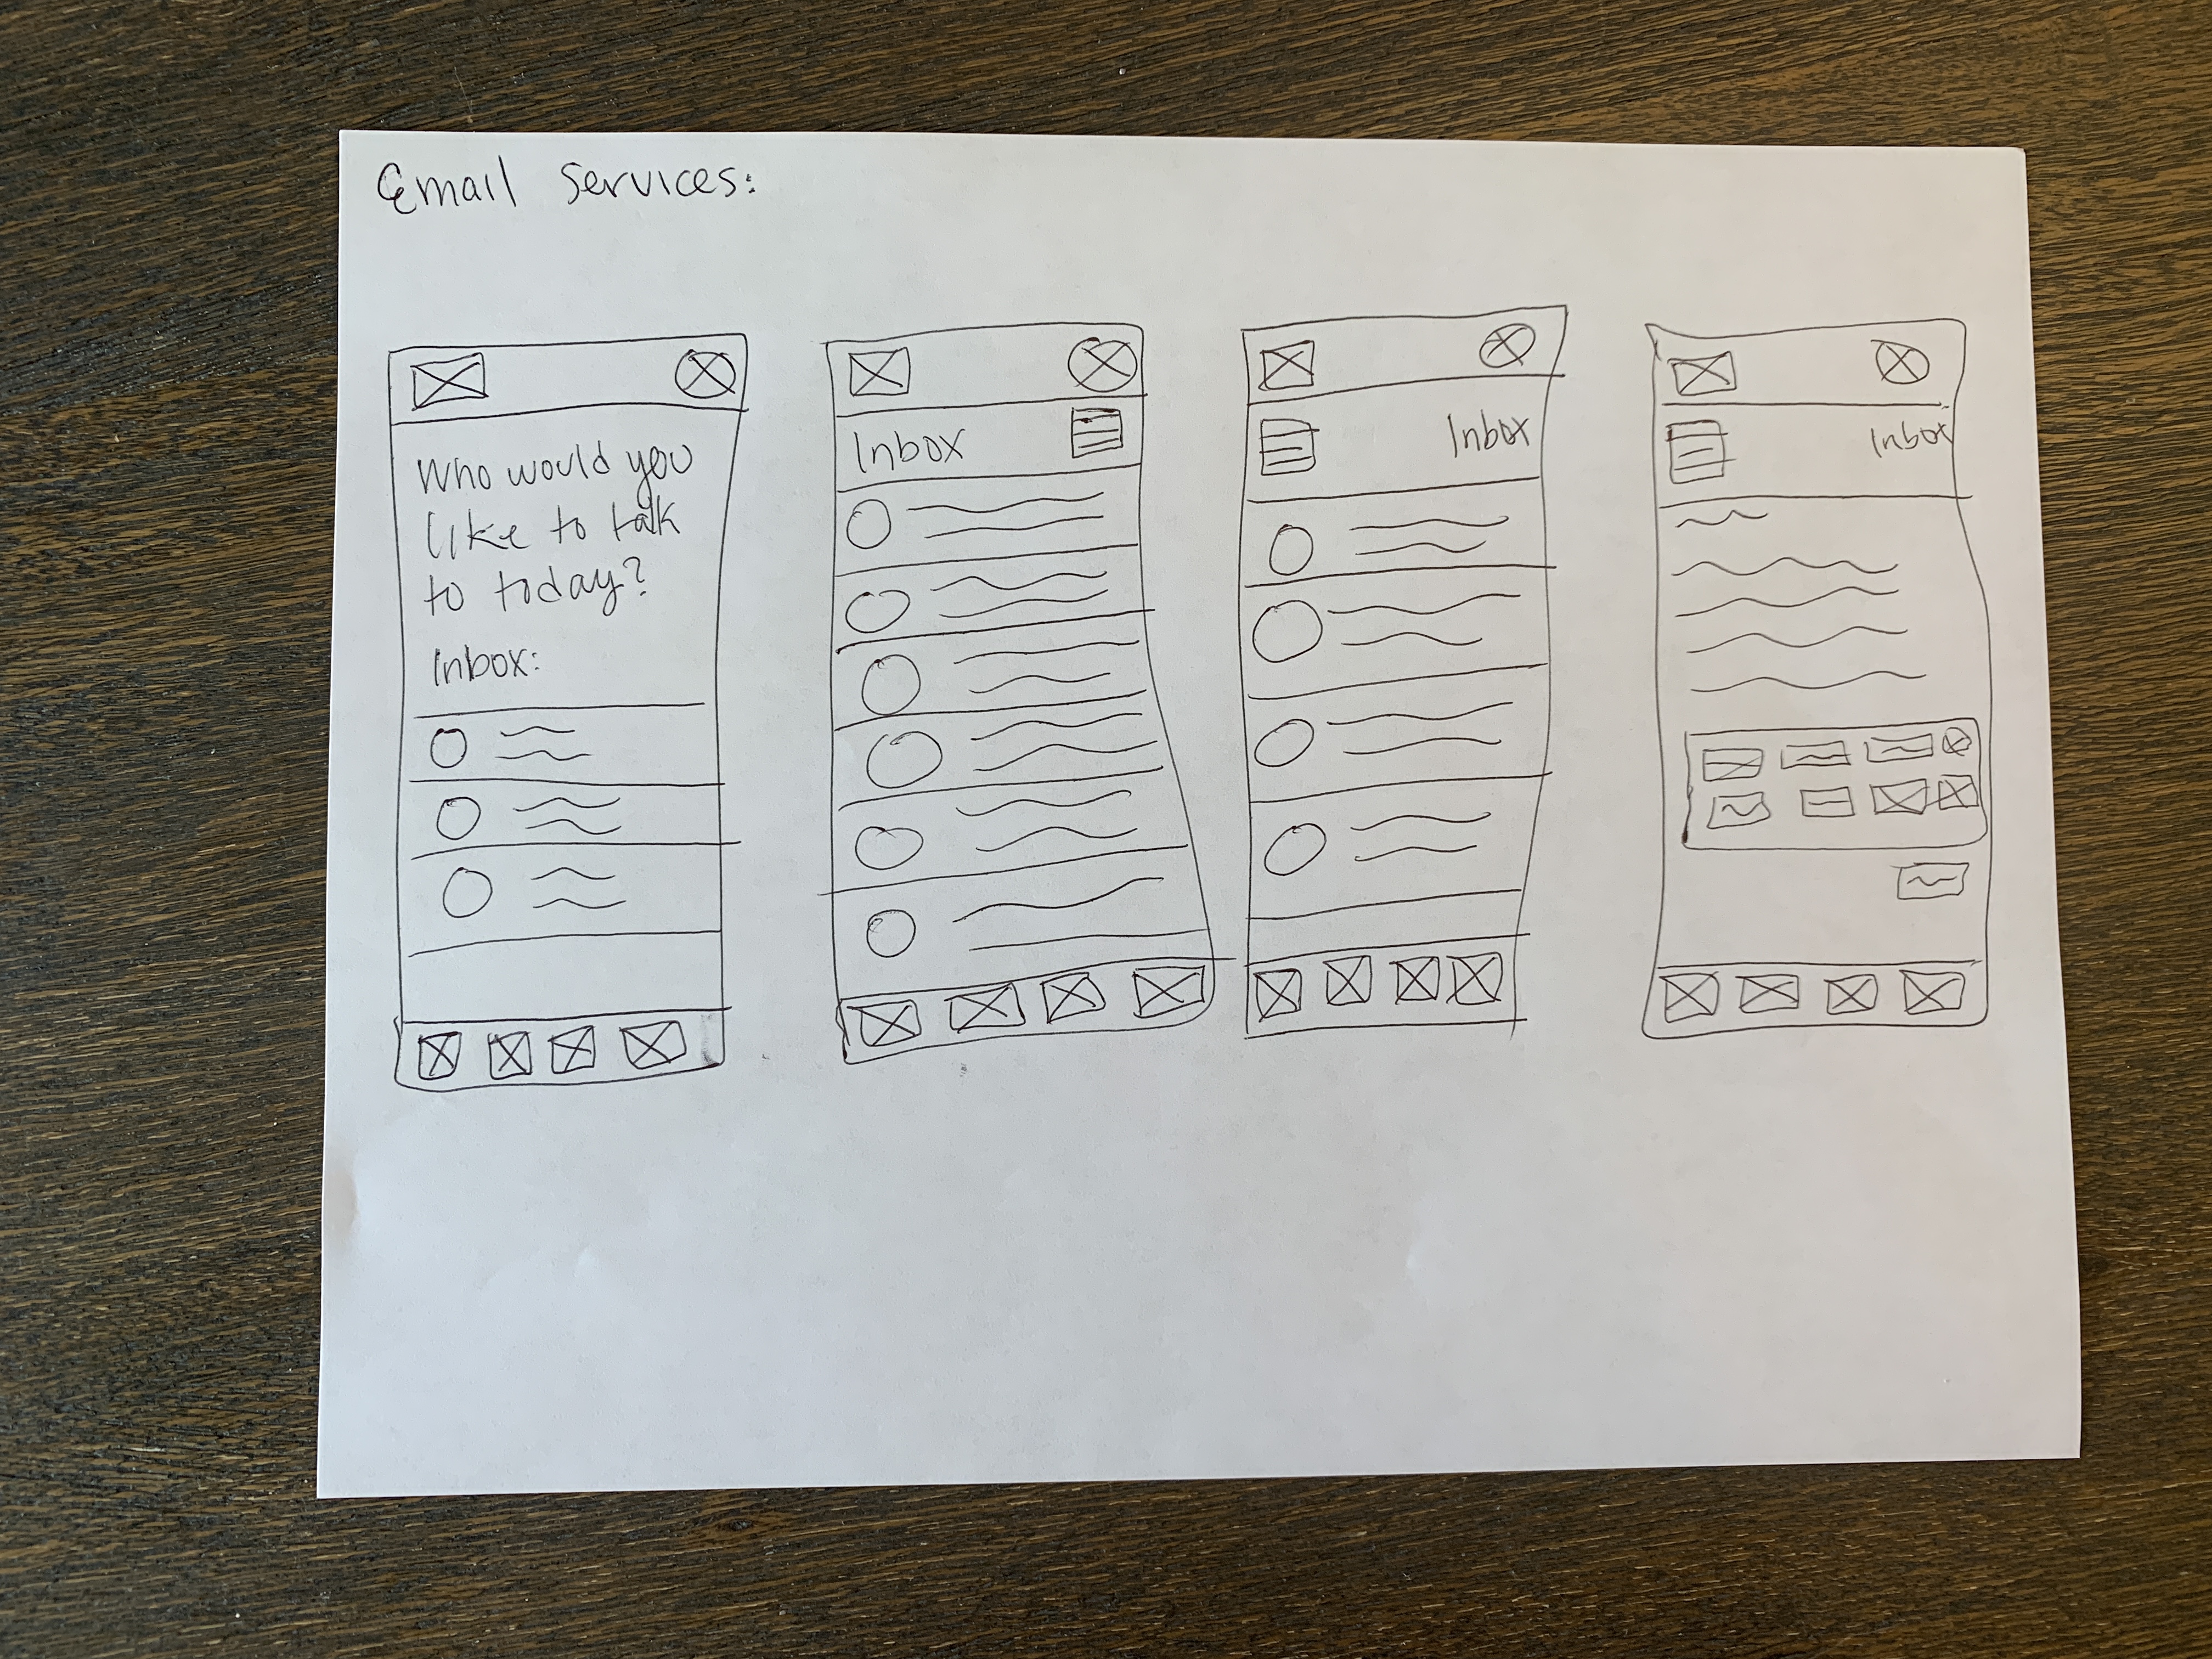 Email Services:
Who would you
like to talk
to today?
Inbox:
Inbox
Inbox
Inbox